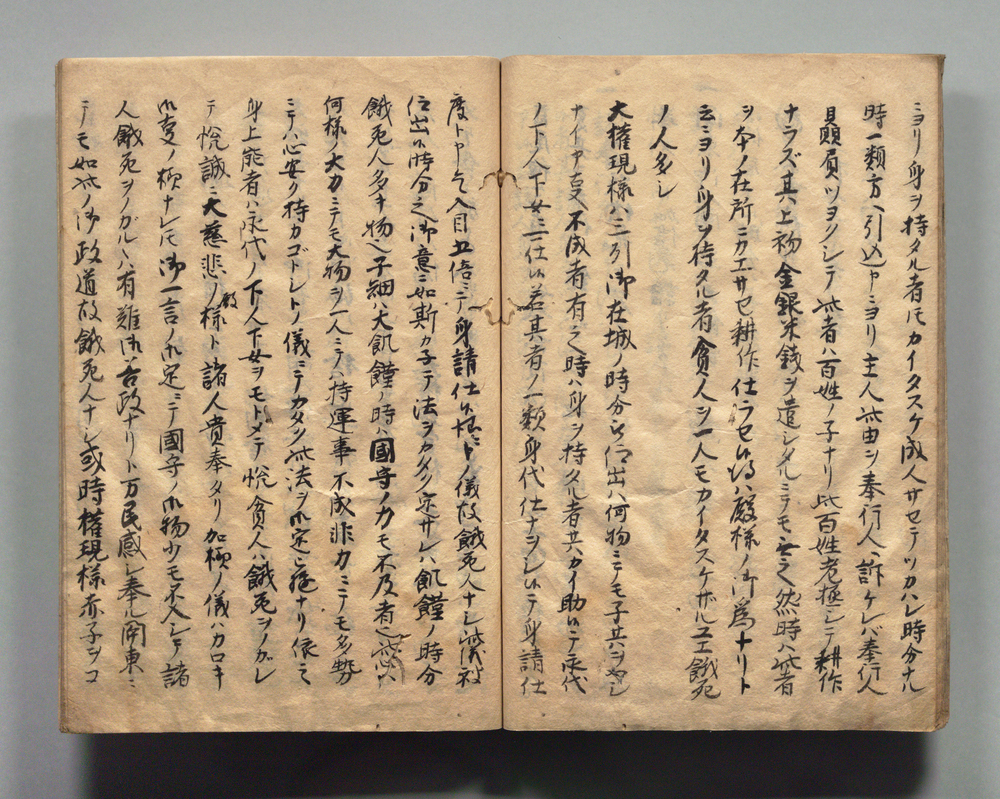 ニヨリ身ヲ持タル者ヒカイタスケ成人サセテツカハレ時分ナル
時一類方ヘ引込ヤニヨリ主人此由ヲ奉行人ヘ訴ケレバ奉行人
贔屓ツヨクシテ此者ハ百姓ノ子ナリ此百姓老極シテ耕作
ナラズ其上物金銀米銭ヲ遣シタルニテモ無之然時ハ此者
ヲ本ノ在所ニカエサセ耕作仕ラセハ殿様ノ御為ナリト
云ニヨリ身ヲ持タル者貧人ヲ一人モカイタスケザルユエ餓死
ノ人多シ
大権現様ハ三引御在城ノ時分被仰出ハ何物ニテモ子共ヲ
ナイヤ事不成者有之時ハ身ヲ持タル者共カイ助ハテ永代
ノ下人下女ニ仕ハ若其者ノ一類身代仕ナヲシハテ身請仕
度トヤ人目五倍ニテ身請仕ハ様ニトノ儀故餓死人ナシ此儀被
仰出ハ時分之御意ニ如斯カ子テ法ヲカタク定サレハ飢饉ノ時分
餓死人多キ物也子細ハ大飢饉ノ時ハ國守ノ力モ不及者也
何様ノ大力ニテモ大物ヲ一人ニテハ持運事不成非力ニテモ多勢
ニテハ心安ク持カゴトレトノ儀ニテカタク此法ヲ御定ナリ依之
身上能者ハ永代ノ下人下女ヲモトメテ悦貧人ハ餓死ヲノガレ
テ悦誠ニ大慈悲ノ殿様ト諸人貴奉タリ加様ノ儀ハカロキ
御事ノ様ナレ共御一言ノ御定ニテ國守ノ御物少モ不入シテ諸
人餓死ヲノガルヽ有難御善政ナリト万民感シ奉ル関東ニ
テモ如此ノ御政道故餓死人ナシ或時権現様赤子ヲコ